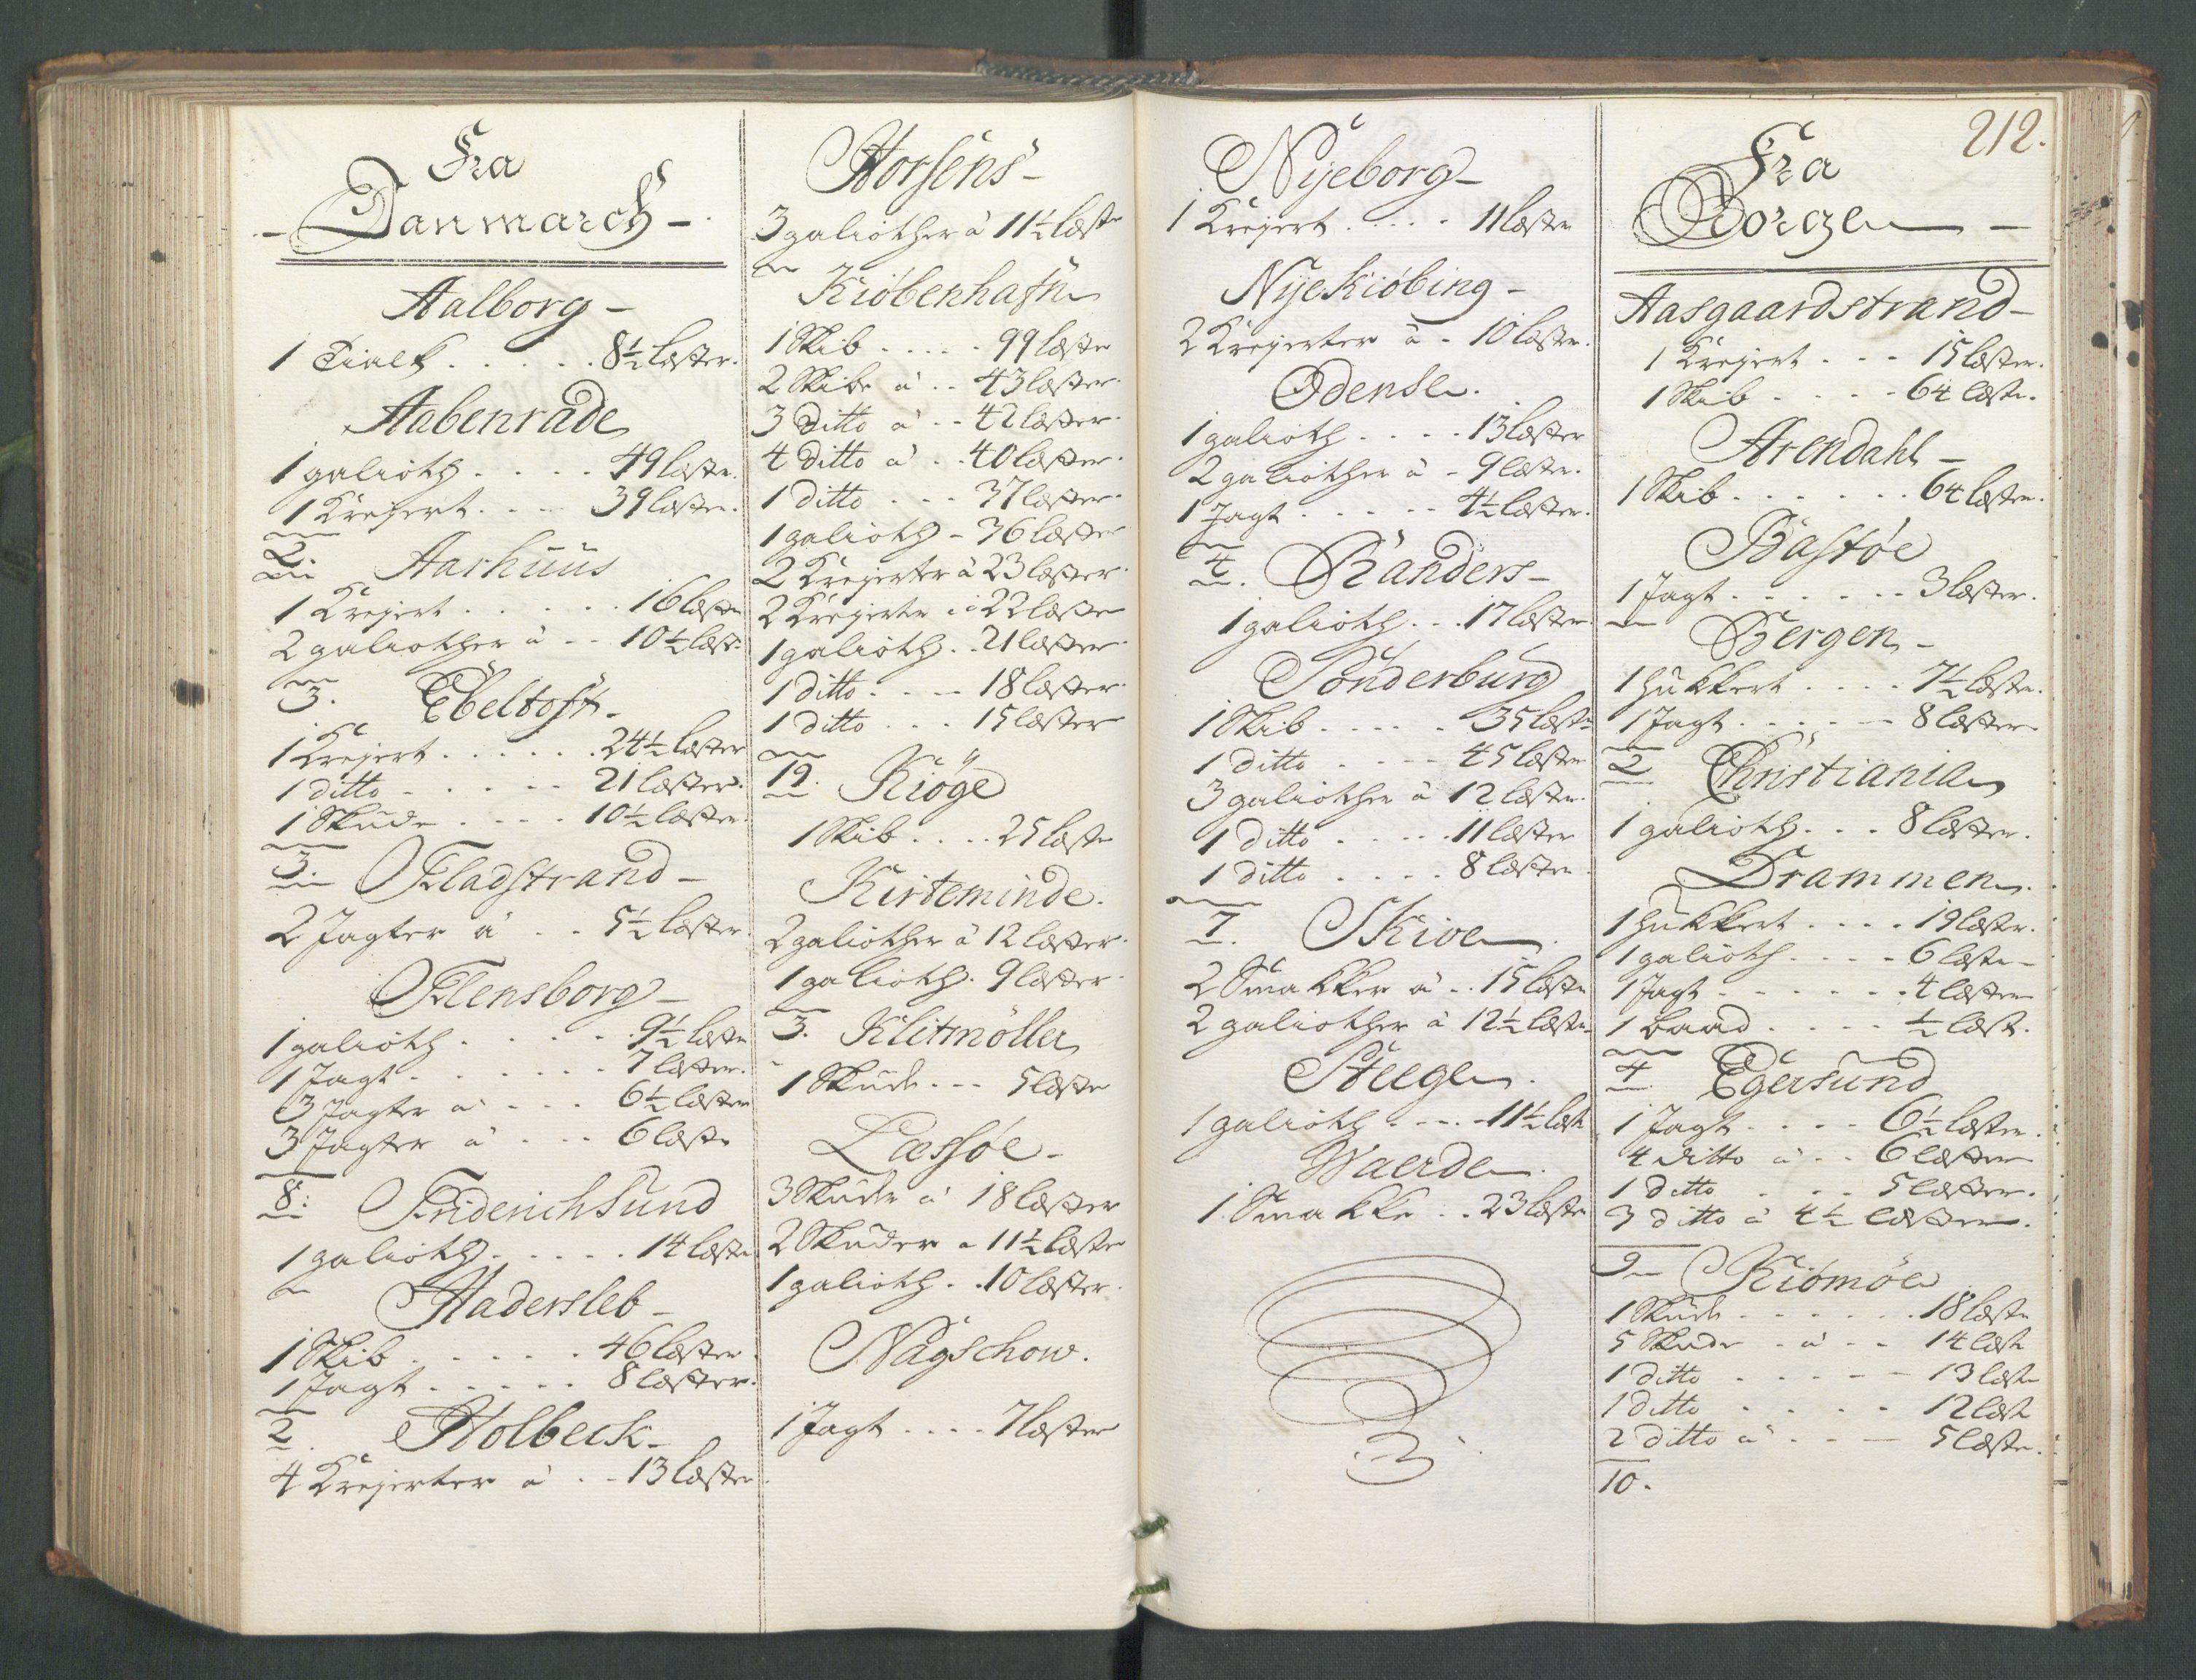 Fra
Danmarch
Aalborg
1 Tialk . . . . . 8½ læster.
Aabenraade
1 galioth . . . . 49 læster.
1 Krejert . . . 39 læster.
2.
Aarhuus
1 Krejert . . . . . 16 læster
2 galiother á . . 10½ læst
3.
Ebeltoft
1 Krejert . . . . . 24½ læster
1 ditto . . . . . 21 læster.
1 Skude . . . . 10½ læster.
3.
Fladstrand
2 Jagter á . . 5½ læster.
Flensborg
1 galioth . . . . 9½ læster
1 Jagt . . . . . . 7 læster.
3 Jagter á . . . 6½ læster
3 Jagter á . . . 6 læster
8.
Friderichsund
1 galioth . . . . . 14 læster
Hadersleb
1 Skib . . . . . 46 læster.
1 Jagt . . . . . 8 læster.
2.
Holbeck
4 Krejerter á . . 13 læster.
Horsens
3 galiother á 11½ læster
Kiöbenhafn
1 Skib . . . . . 99 læster
2 Skibe á . . 43 læster.
3 ditto á . . 42 læster.
4 ditto á . . 40 læster.
1 ditto . . . 37 læster.
1 galioth - 36 læster
2 Krejerter á 23 læster.
2 Krejerter á 22 læster
1 galioth . . 21 læster.
1 ditto . . . 18 læster.
1 ditto . . . 15 læster
19.
Kiöge
1 Skib . . . . 25 læster
Kirteminde.
2 galiother á 12 læster.
1 galioth . 9 læster.
3.
Klitmöller
1 Skude . . . 5 læster
Læssöe
3 Skuder á 18 læster
2 Skuder á 11½ læster
1 galioth . . 10 læster.
Nagschow.
1 Jagt . . . . 7 læster
Nyeborg
1 Krejert . . . . 11 læster
Nyekiöbing
2 Krejerter á . 10 læster.
Odense.
1 galioth . . . . 13 læster
2 galiother á - 9 læster.
1 Jagt . . . . . 4½ læster.
4.
Randers
1 galioth . . . 17 læster
Sönderburg
1 Skib . . . . . 35 læster
1 ditto . . . . 45 læster
3 galiother á 12 læster.
1 ditto . . . . . 11 læster
1 ditto . . . . 8 læster
7.
Skive.
2 Smakker á . . 15 læster
2 galiother á 12½ læster.
Steege.
1 galioth . . . . 11½ læst
Waerde.
1 Smakke . . 23 læster
212.
Fra
Norge
Aasgaardstrand
1 Krejert . . . 15 læster.
1 Skib . . . . 64 læster.
Arendahl
1 Skib . . . . . . 64 læster.
Bastöe
1 Jagt . . . . . . 3 læster.
Bergen
1 Hukkert . . . . 7½ læster.
1 Jagt . . . . . 8 læster
2
Christiania
1 galioth . . . 8 læster.
Drammen.
1 Hukkert . . . . 19 læster.
1 galioth . . . . 6 læster
1 Jagt . . . . . . 4 læster
1 baad . . . . ½ læst.
4
Egersund
1 Jagt . . . . 6½ læster.
4 ditto á . . 6 læster
1 ditto . . . 5 læster.
3 ditto á 4½ læster.
9
Kiömöe
1 Skude . . . . . . 18 læster
5 Skuder . á . . 14 læst
1 ditto . . . . . 13 læst
1 ditto . . . . . 12 læst
2 ditto á . . . 5 læster.
10.